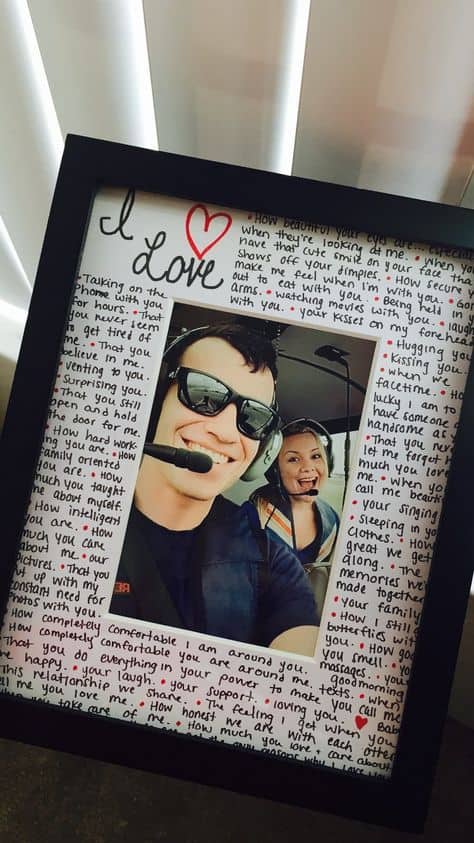 I
Love
• How beautiful your eyes are... especial
when they're looking at me. • When yo
have that cute smile on your face tha
shows off your dimples. • How secure y
make me feel when I'm with you. • Go
out to eat with you. • Being held in
arms. • watching movies with you. • lau
with you. • your kisses on my forehea
• Talking on the
phone with you
for hours. • That
you never seem
to get tired of
me. • That you
believe in me.
• venting to you.
• Surprising you.
• That you still
open and hold
the door for me.
• How hard work-
ing you are. • How
family oriented
you are. • How
much you taught
me about myself.
• How intelligent
you are. • How
much you care
about me. • our
pictures. • That you
put up with my
constant need for
photos with you.
Hugging you
Kissing you.
• when we
facetime. •
lucky I am to
have someone a
handsome as
• That you nev
let me forget h
much you lov
me. • when yo
call me beauti
• your singing
• Sleeping in yo
clothes. • How
great we get
along. • The
memories we
made together
• your family
• How I still
butterflies wit
you. • How go
you smell. • you
massages.
goodmorning
texts. • when
• How completely comfortable I am around you.
• How completely comfortable you are around me.
• That you do everything in your power to make you
be happy. • your laugh. • your support. • loving you.
call me Bab
This relationship we share. • The feeling I get when you
tell me you love me. • How honest we are with each other
you take care of me. • How much you love + care about
the only reasons why I love